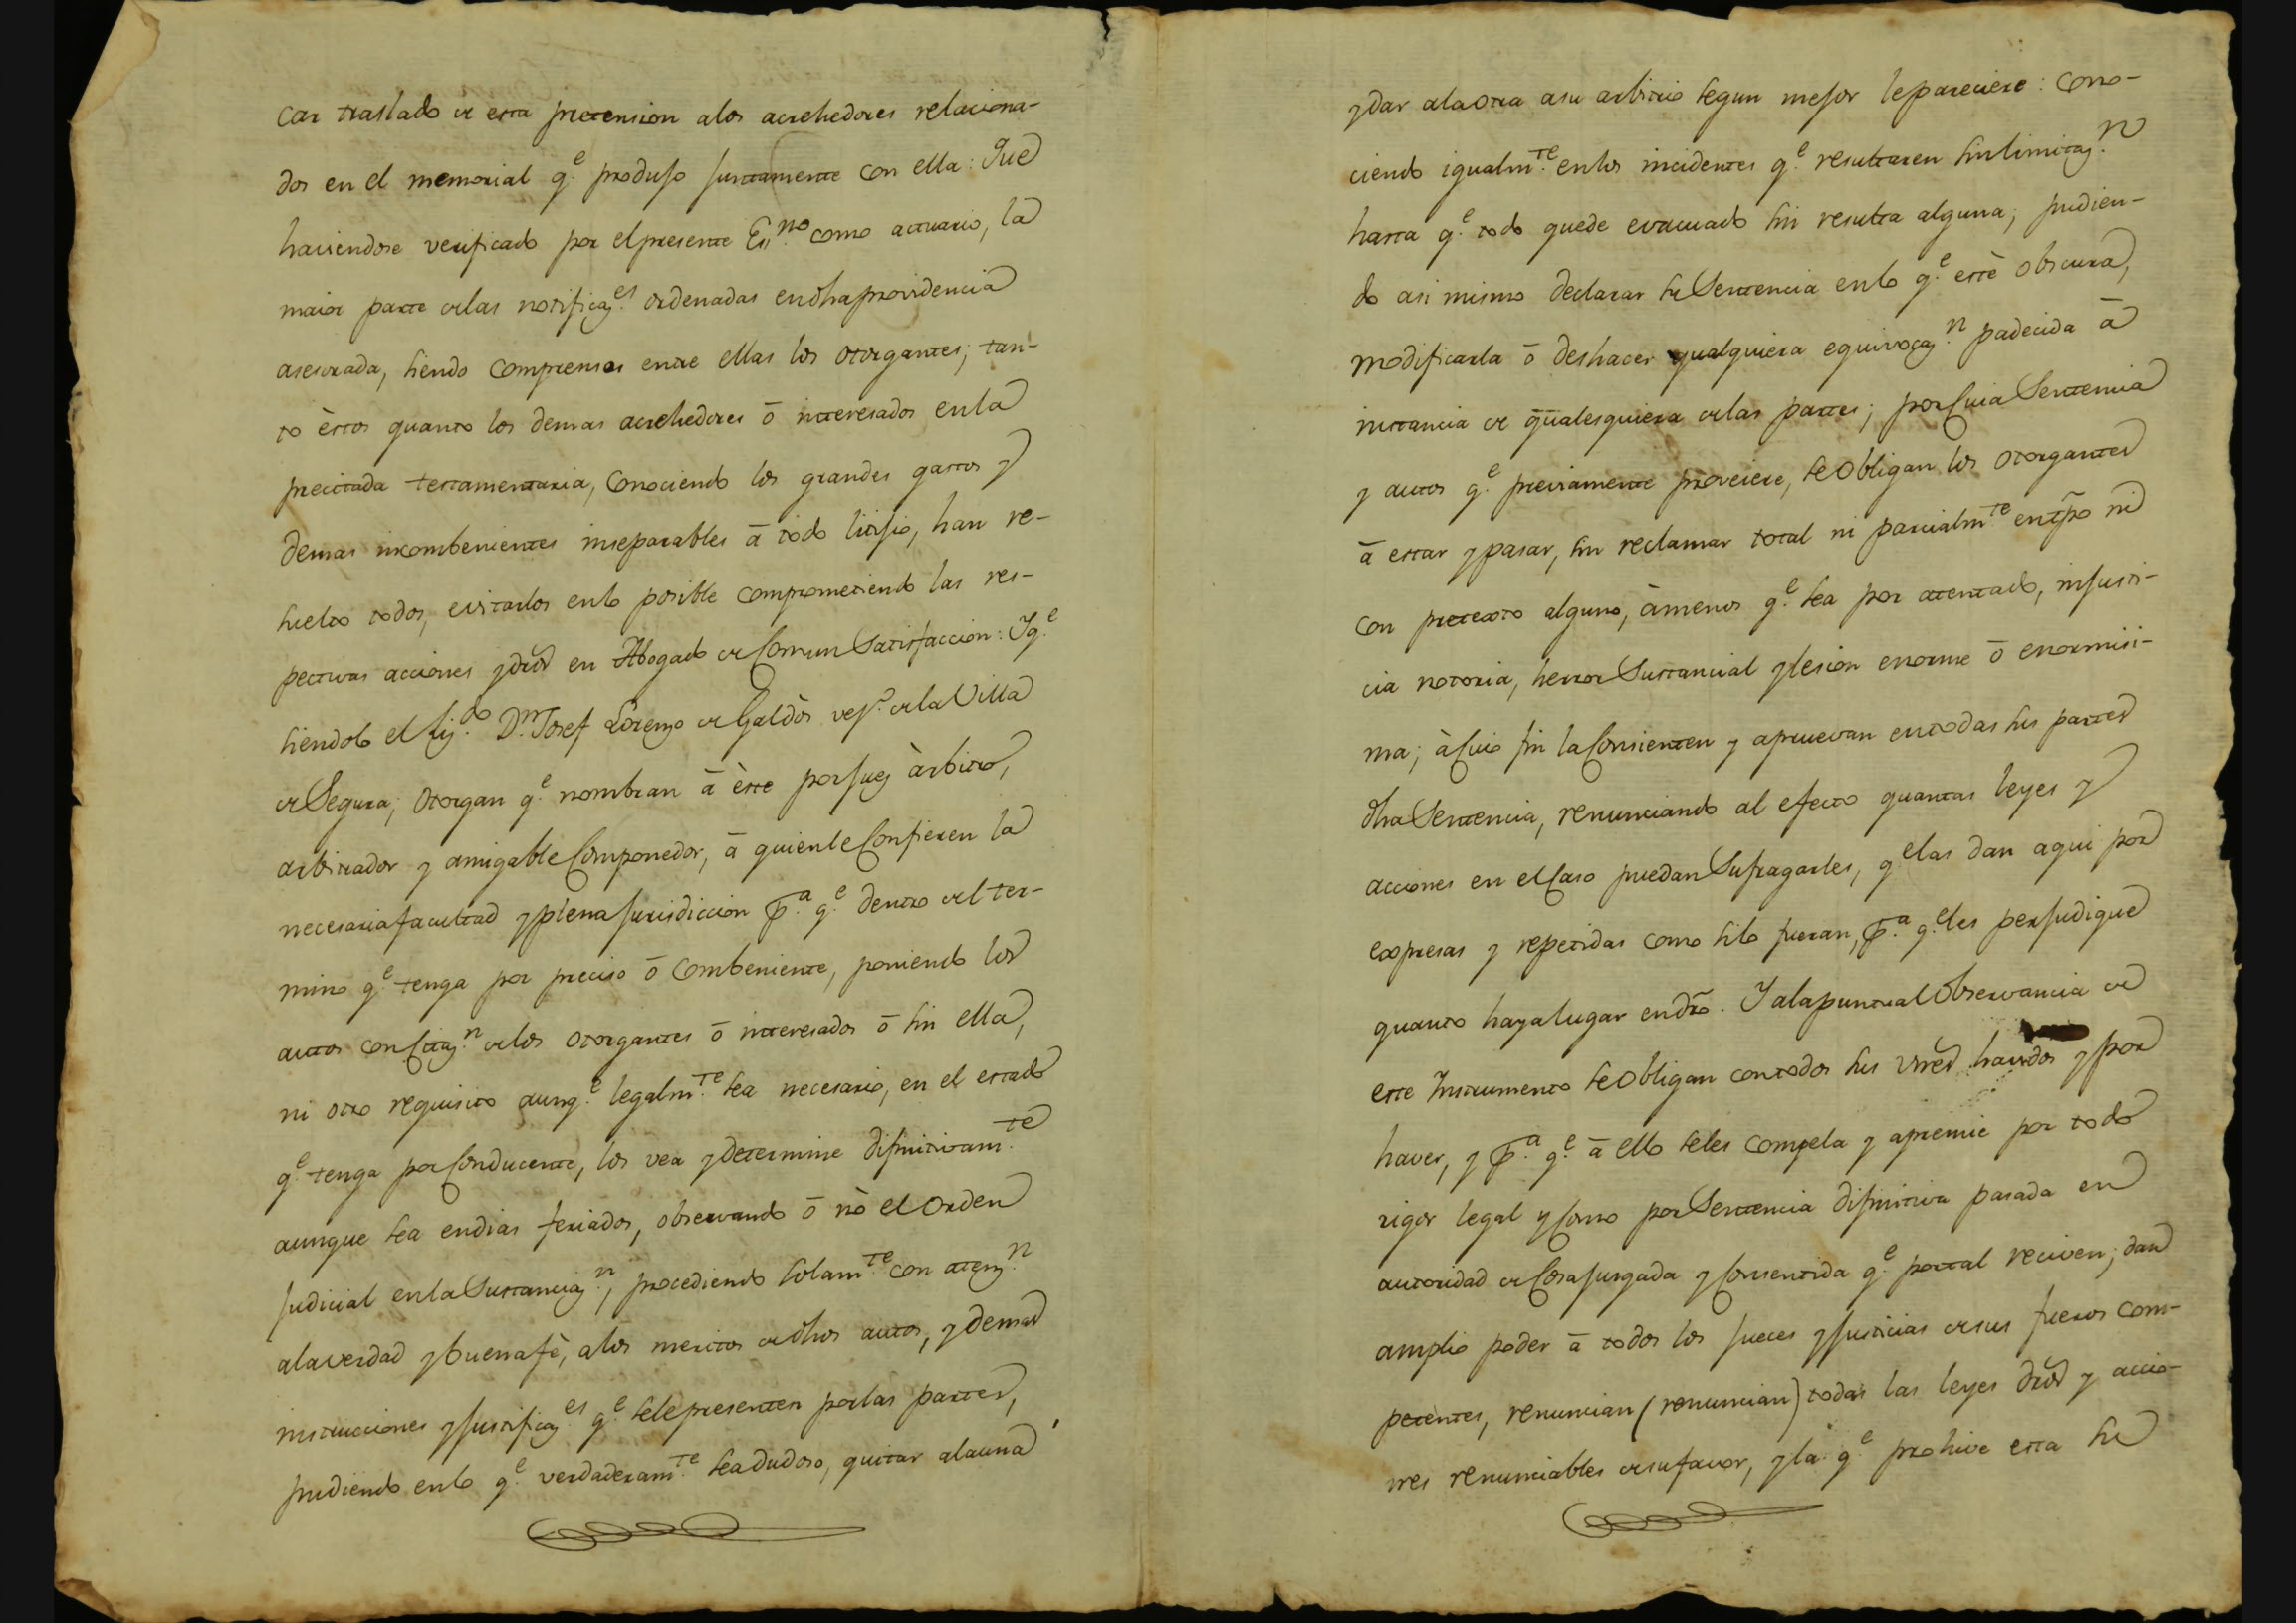 car traslado de esta pretension alos acrehedores relaciona-
dos en el memorial q.e produjo juntamente con ella: Que
haviendose verificado por el presente Ess.no como actuario, la
maior parte delas notificaz.es ordenadas en dha providencia
asesorada, siendo comprensos entre ellas los otorgantes; tan-
to èstos quanto los demas acrehedores ō interesados en la
precitada testamentaria, conociendo los grandes gastos y
demas incombenientes inseparables ā todo litijio, han re-
suelto todos, evitarlos enlo posible comprometiendo las res-
pectivas acciones y dros en Abogado de Comun Satisfaccion: Y q.e
siendolo el Liz.do D.n Josef Lorenzo de Galdòs vez.o dela Villa
de Segura; otorgan q.e nombran ā èste por Juez àrbitro,
arbitrador y amigable Componedor, ā quien le Confieren la
necesaria facultad y plena Jurisdiccion p.a q.e dentro del ter-
mino q.e tenga por preciso ō combeniente, poniendo los
autos con Citaz.n delos otorgantes ō interesados ō sin ella,
ni otro requisito aunq.e legalm.te sea necesario, en el estado
q.e tenga por Conducente, los vea y determine difinitivam.te
aunque sea en dias feriados, observando ō nò el orden
judicial en la Sustanciaz.n, procediendo solam.te con atenz.n
ala verdad y buena fè, alos meritos de dhos autos, y demas
instrucciones y justificaz.es q.e sele presenten por las partes,
pudiendo enlo q.e verdaderam.te sea dudoso, quitar ala una
y dar ala otra a su arbitrio segun mejor le pareciere: cono-
ciendo igualm.te enlos incidentes q.e resultaren sin limitaz.n
hasta q.e todo quede evacuado sin resulta alguna; pudien-
do asi mismo declarar su Sentencia enlo q.e estè obscura,
modificarla ō deshacer qualquiera equivocaz.n padecida ā
instancia de qualesquiera delas partes; por Cuia Sentencia
y autos q.e previamente proveiere, se obligan los otorgantes
ā estar y pasar, sin reclamar total ni parcialm.te en tpo ni
con pretexto alguno, àmenos q.e sea por atentado, injusti-
cia notoria, herror Sustancial y lesion enorme ō enormisi-
ma; à Cuio fin la Consienten y apruevan en todas sus partes
dha Sentencia, renunciando al efecto quantas leyes y
acciones en el Caso puedan Sufragarles, q.e las dan aqui por
expresas y repetidas como silo fueran, p.a q.e les perjudique
quanto haya lugar en dro. Y ala puntual observancia de
este Instrumento se obligan con todos sus vnes havidos y por
haver, y p.a q.e ā ello seles compela y apremie por todo
rigor legal y Como por Sentencia difinitiva pasada en
autoridad de Cosa jusgada y Consentida q.e por tal reciven; dan
amplio poder ā todos los jueces y justicias de sus fueros com-
petentes, renuncian (renuncian) todas las leyes dros y accio-
nes renunciables de su favor, y la q.e prohive esta su